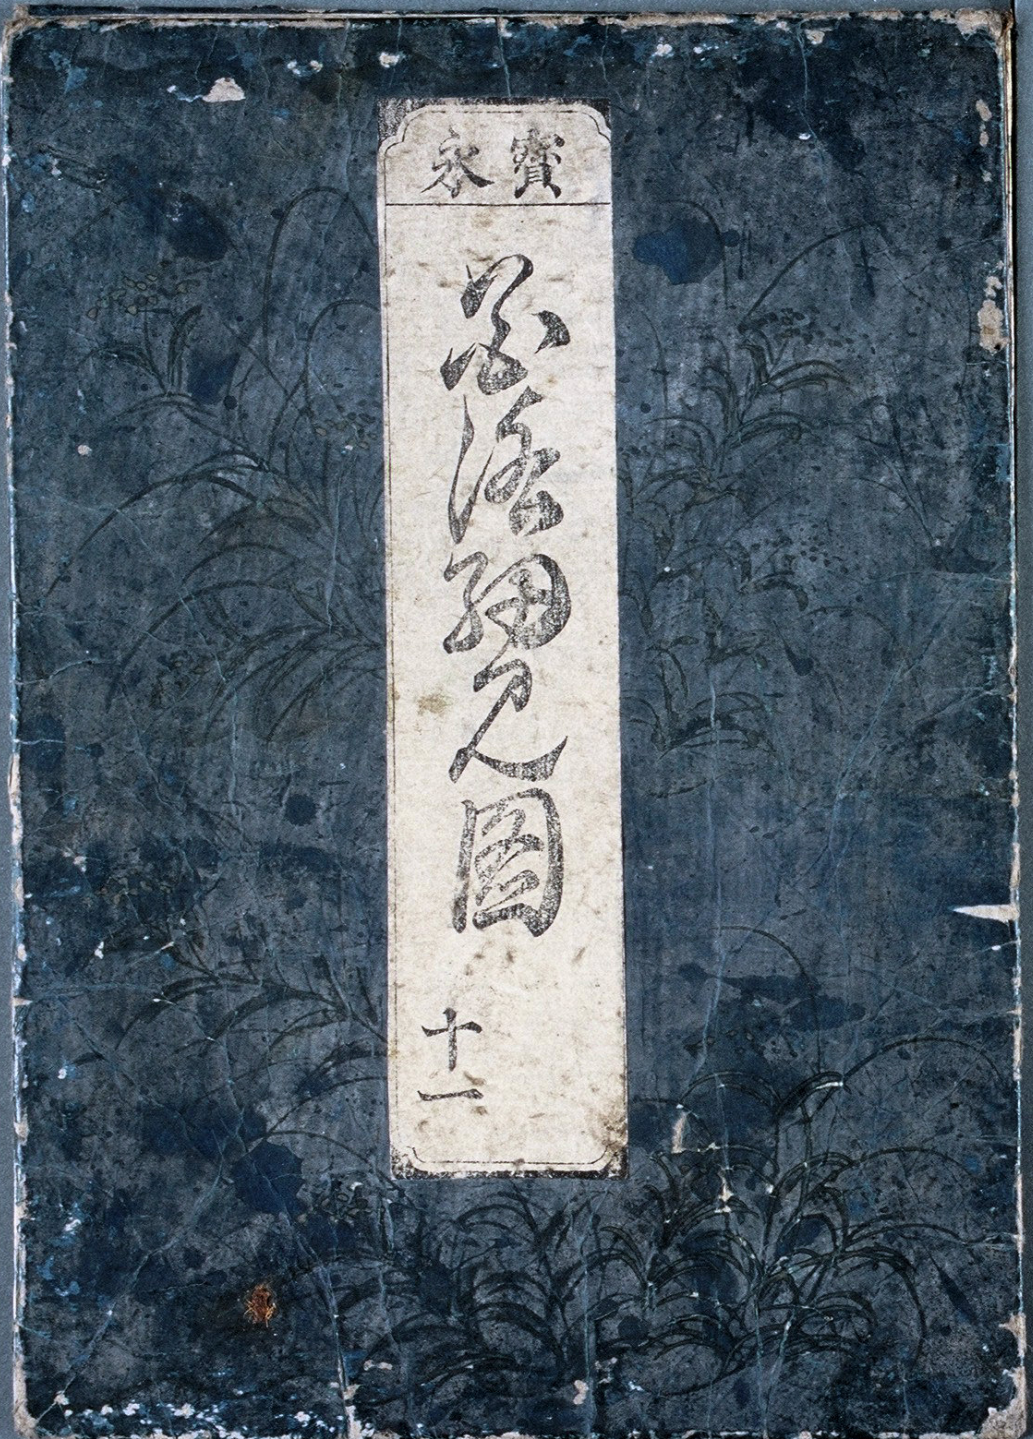 寶永
花洛細見圖
十一